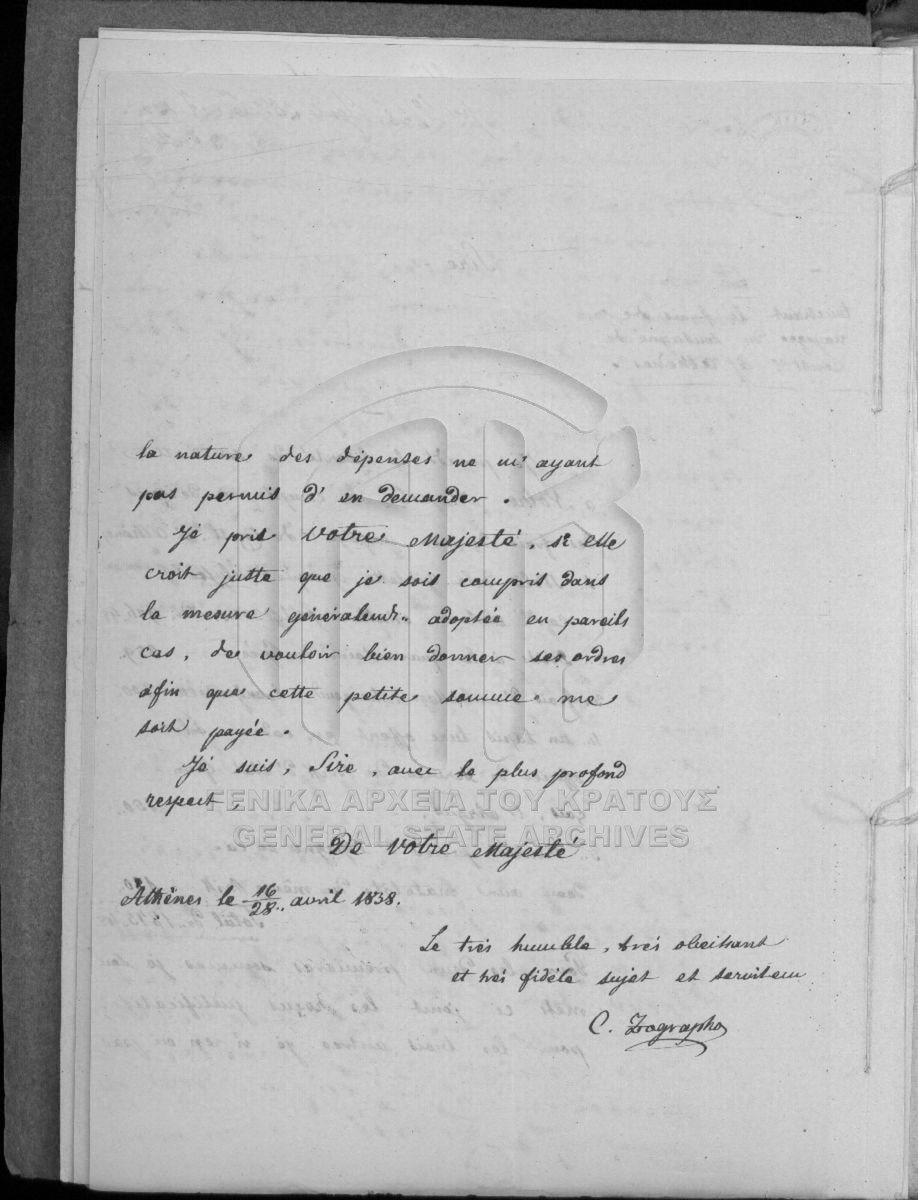 la nature des dépenses ne m'ayant
pas permis d'en demander.
Je prie Votre Majesté, si elle
croit juste que je sois compris dans
la mesure généralem.t adoptée en pareils
cas, de vouloir bien donner ses ordres
afin que cette petite somme me
soit payée.
Je suis, Sire, avec le plus profond
respect,
ΓΕΝΙΚΑ ΑΡΧΕΙΑ ΤΟΥ ΚΡΑΤΟΥΣ
GENERAL STATE ARCHIVES
De Votre Majesté
Athènes le 16/28 avril 1838.
Le très humble, très obeissant
et très fidèle sujet et serviteur
C. Zographo